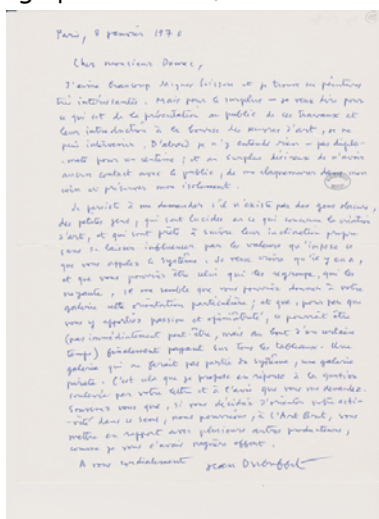 Paris, 8 janvier 1970
Cher monsieur Domec,
J'aime beaucoup Miguel et je trouve ses peintures
très intéressantes. Mais pour le surplus — je veux dire pour
ce qui est de la présentation au public de ces travaux et
leur introduction à la bourse des œuvres d'art, je ne
puis intervenir. D'abord je n'y entends rien — pas
pour un centime ; et au surplus désireux de n'avoir
aucun contact avec le public, de me claquemurer dans mon
coin et préserver mon isolement.
Je persiste à me demander s'il n'existe pas des gens obscurs,
des petites gens, qui sont lucides en ce qui concerne la création
d'art, et qui sont prêts à suivre leur inclination propre
sans se laisser influencer par les valeurs qu'impose ce
que vous appelez le système. Je veux croire qu'il y en a,
et que vous pourriez être celui qui les regroupe, qui les
. Il me semble que vous pourriez donner à votre
galerie cette orientation particulière ; et que, pour peu que
vous y apportiez passion et opiniâtreté, ce pourrait être
(pas immédiatement peut-être, mais au bout d'un certain
temps) finalement payant sur tous les tableaux. Une
galerie qui ne ferait pas partie du système, une galerie
pirate. C'est cela que je propose en réponse à la question
soulevée par votre lettre et à l'avis que vous me demandez.
Souvenez vous que, si vous décidez d'orienter votre acti-
-vité dans ce sens, nous pourrions, à l'Art Brut, vous
mettre en rapport avec plusieurs autres producteurs,
comme je vous l'avais naguère offert.
A vous cordialement Jean Dubuffet